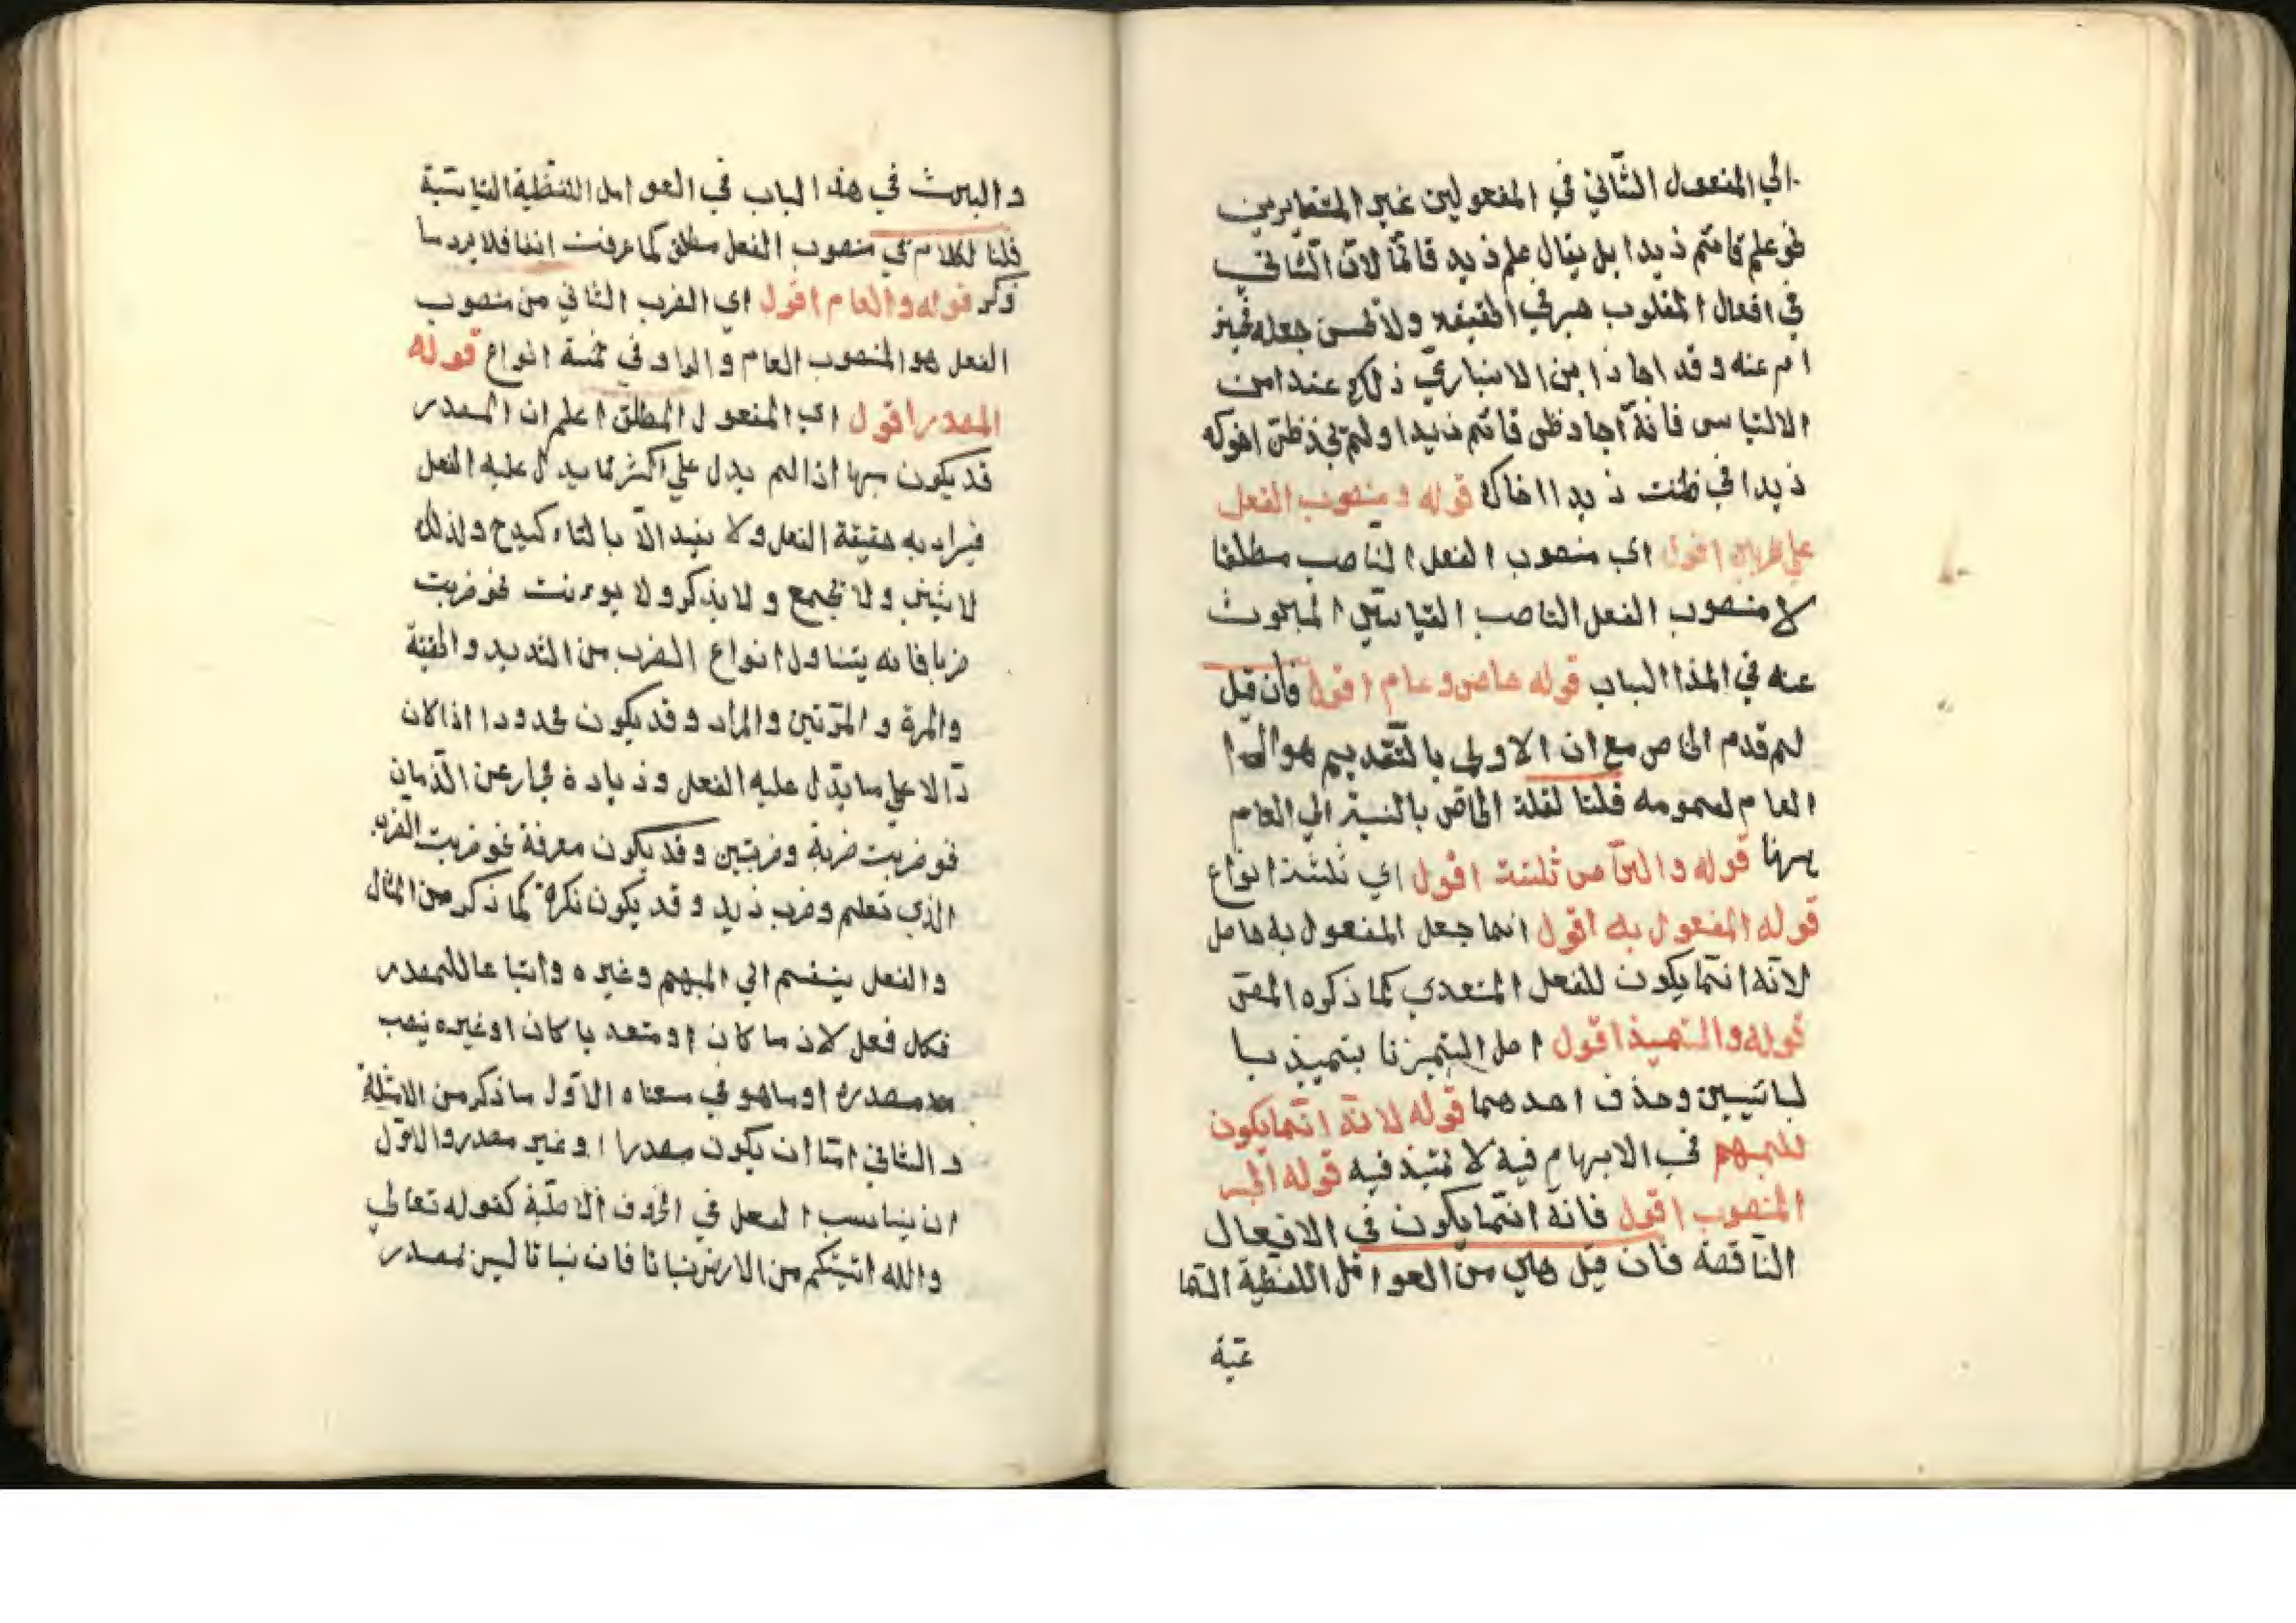 الي المفعول الثاني في المفعولين غير المتغايرين
نحو علم قائم زيدا بل يقال علم زيد قائما لان الثاني
في افعال القلوب خبر في الحقيقة ولا يحسن جعله مخبرا
ام عنه وقد اجاز ابن الانباري ذلك عند امن
الالتباس فانه اجاز ظن قائم زيدا ولم يجز ظن اخوك
زيدا في ظننت زيدا اخاك قوله ومنصوب الفعل
علي ضربين اقول اي منصوب الفعل الناصب مطلقا
لا منصوب الفعل الناصب القياسي المبحوث
عنه في هذا الباب قوله خاص وعام اقول فان قيل
لم قدم الخاص مع ان الاولي بالتقديم هو
العام لعمومه قلنا لقلة الخاص بالنسبة الي العام
ههنا قوله والخاص ثلثة اقول اي ثلثة انواع
قوله المفعول به اقول انما جعل المفعول به خاص
لانه انما يكون للفعل المتعدي كما ذكره المص
قوله والتميز اقول اصل التميز تميز بيا
بيائين وحذف احدهما قوله لانه انما يكون
للمبهم في الابهام فيه لا تميز فيه قوله الخبر
المنصوب اقول فانه انما يكون في الافعال
الناقصة فان قيل هي من العوامل اللفظية السما
عية
والبحث في هذا الباب في العوامل اللفظية القياسية
قلنا الكلام في منصوب الفعل مطلق كما عرفت انفا فلا يرد ما
ذكر قوله والعام اقول اي الضرب الثاني من منصوب
الفعل هو المنصوب العام والوارد في خمسة انواع قوله
المصدر اقول اي المفعول المطلق اعلم ان المصدر
قد يكون مبهما اذا لم يدل علي اكثر مما يدل عليه الفعل
فيراد به حقيقة الفعل ولا يفيد الا بالتاء كيد ولذلك
لا يثني ولا يجمع ولا يذكر ولا يوءنث نحو ضربت
ضربا فانه يتناول انواع الضرب من الشديد والخفية
والمرة والمرتين والمراد وقد يكون محدودا اذا كان
دالا علي ما يدل عليه الفعل وزيادة مجار عن الزمان
نحو ضربت ضربة وضربتين وقد يكون معرفة نحو ضربت الضرب
الذي تعلم وضرب زيد وقد يكون نكرة كما ذكر من المثال
والفعل ينقسم الي المبهم وغيره واتباعا للمصدر
فكل فعل لازما كان او متعديا كان او غيره ينصب
مصدره او ما هو في معناه الاول ما ذكر من الامثلة
والثاني اما ان يكون مصدرا او غير مصدر والاول
ان يناسب الفعل في الحروف الاصلية كقوله تعالي
والله انبتكم من الارض نباتا فان نباتا ليس بمصدر